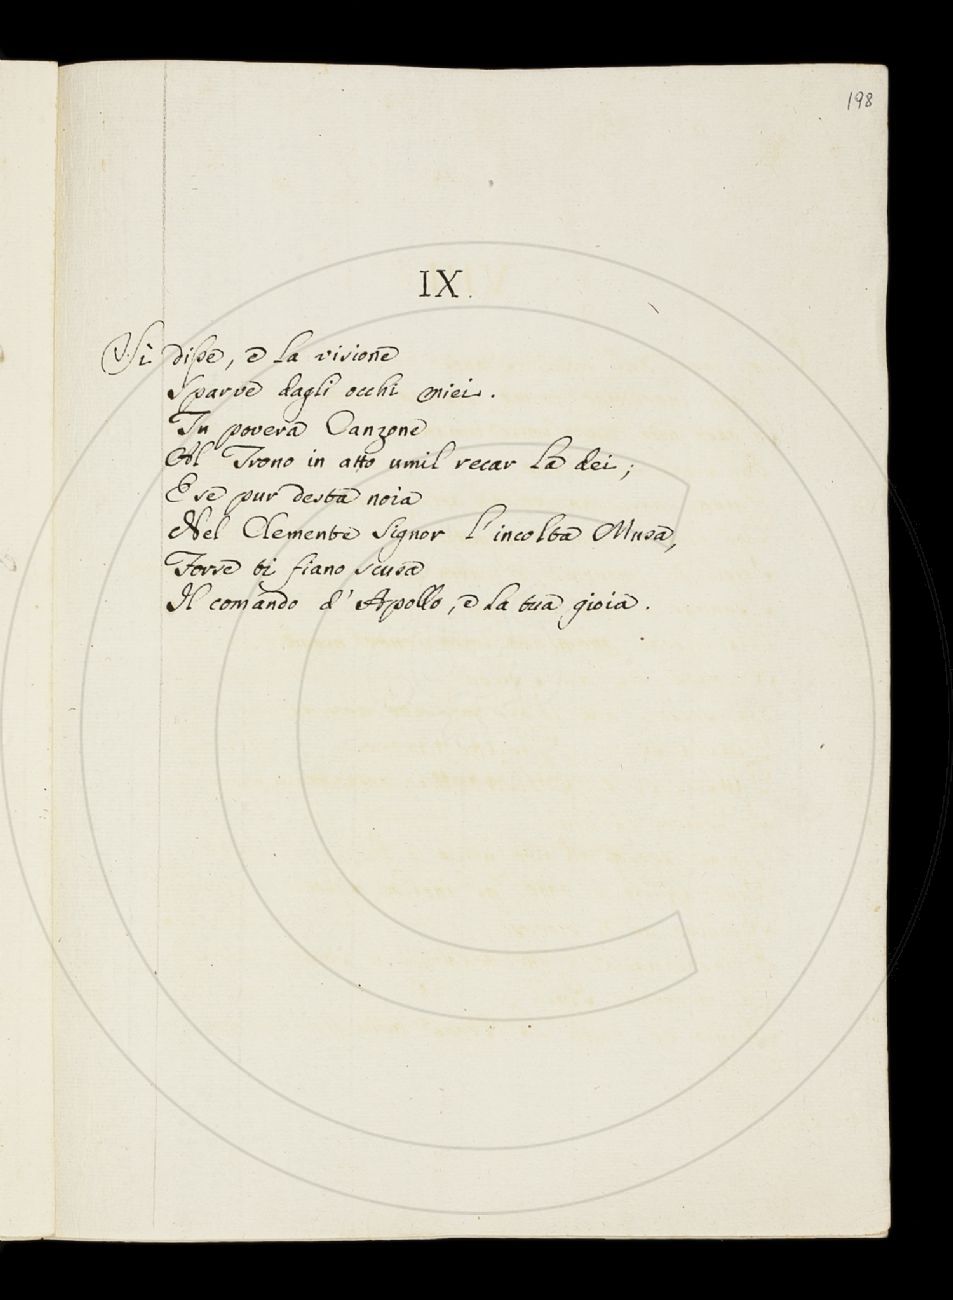 198
IX.
Sì disse, e la visione
Sparve dagli occhi miei.
Tu povera Canzone
Al Trono in atto umil recar la dei;
E se pur desta noia
Nel Clemente Signor l'incolta Musa,
Forse ti fiano scusa
Il comando d'Apollo, e la tua gioia.